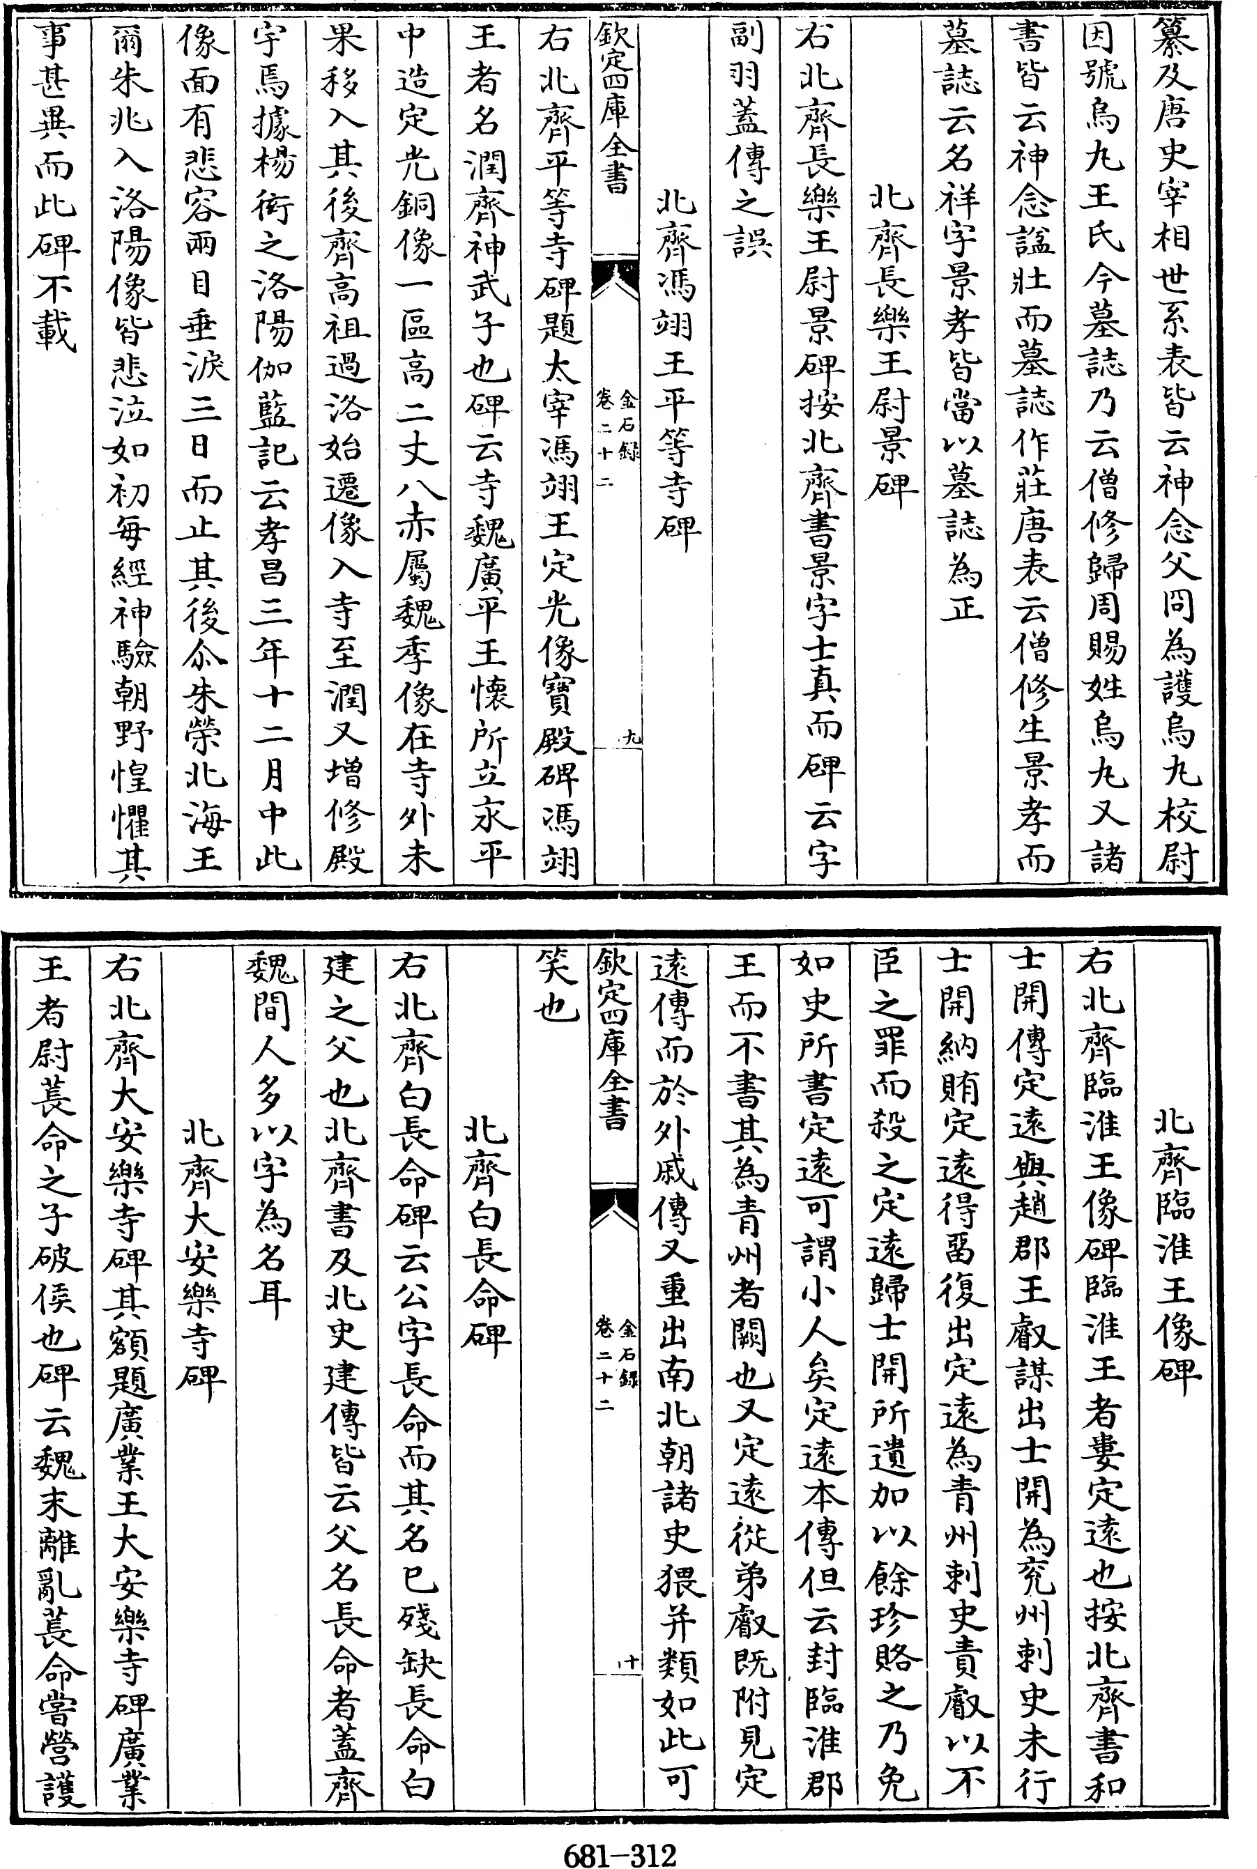 纂及唐史宰相世系表皆云神念父冏為護烏丸校尉
因號烏丸王氏今墓誌乃云僧修歸周賜姓烏丸又諸
書皆云神念諡壯而墓誌作莊唐表云僧修生景孝而
墓誌云名祥字景孝皆當以墓誌為正
北齊長樂王尉景碑
右北齊長樂王尉景碑按北齊書景字士真而碑云字
副羽蓋傳之誤
北齊馮翊王平等寺碑
欽定四庫全書
金石録
卷二十二
九
右北齊平等寺碑題太宰馮翊王定光像寶殿碑馮翊
王者名潤齊神武子也碑云寺魏廣平王懷所立永平
中造定光銅像一區高二丈八赤屬魏季像在寺外未
果移入其後齊高祖過洛始遷像入寺至潤又增修殿
宇焉據楊衒之洛陽伽藍記云孝昌三年十二月中此
像面有悲容兩目垂淚三日而止其後尒朱榮北海王
爾朱兆入洛陽像皆悲泣如初每經神驗朝野惶懼其
事甚異而此碑不載
北齊臨淮王像碑
右北齊臨淮王像碑臨淮王者婁定遠也按北齊書和
士開傳定遠與趙郡王叡謀出士開為兖州刺史未行
士開納賄定遠得畱復出定遠為青州刺史責叡以不
臣之罪而殺之定遠歸士開所遺加以餘珍賂之乃免
如史所書定遠可謂小人矣定遠本傳但云封臨淮郡
王而不書其為青州者闕也又定遠從弟叡既附見定
遠傳而於外戚傳又重出南北朝諸史猥并類如此可
欽定四庫全書
金石録
卷二十二
十
笑也
北齊白長命碑
右北齊白長命碑云公字長命而其名已殘缺長命白
建之父也北齊書及北史建傳皆云父名長命者蓋齊
魏間人多以字為名耳
北齊大安樂寺碑
右北齊大安樂寺碑其額題廣業王大安樂寺碑廣業
王者尉萇命之子破侯也碑云魏末離亂萇命嘗營護
681-312